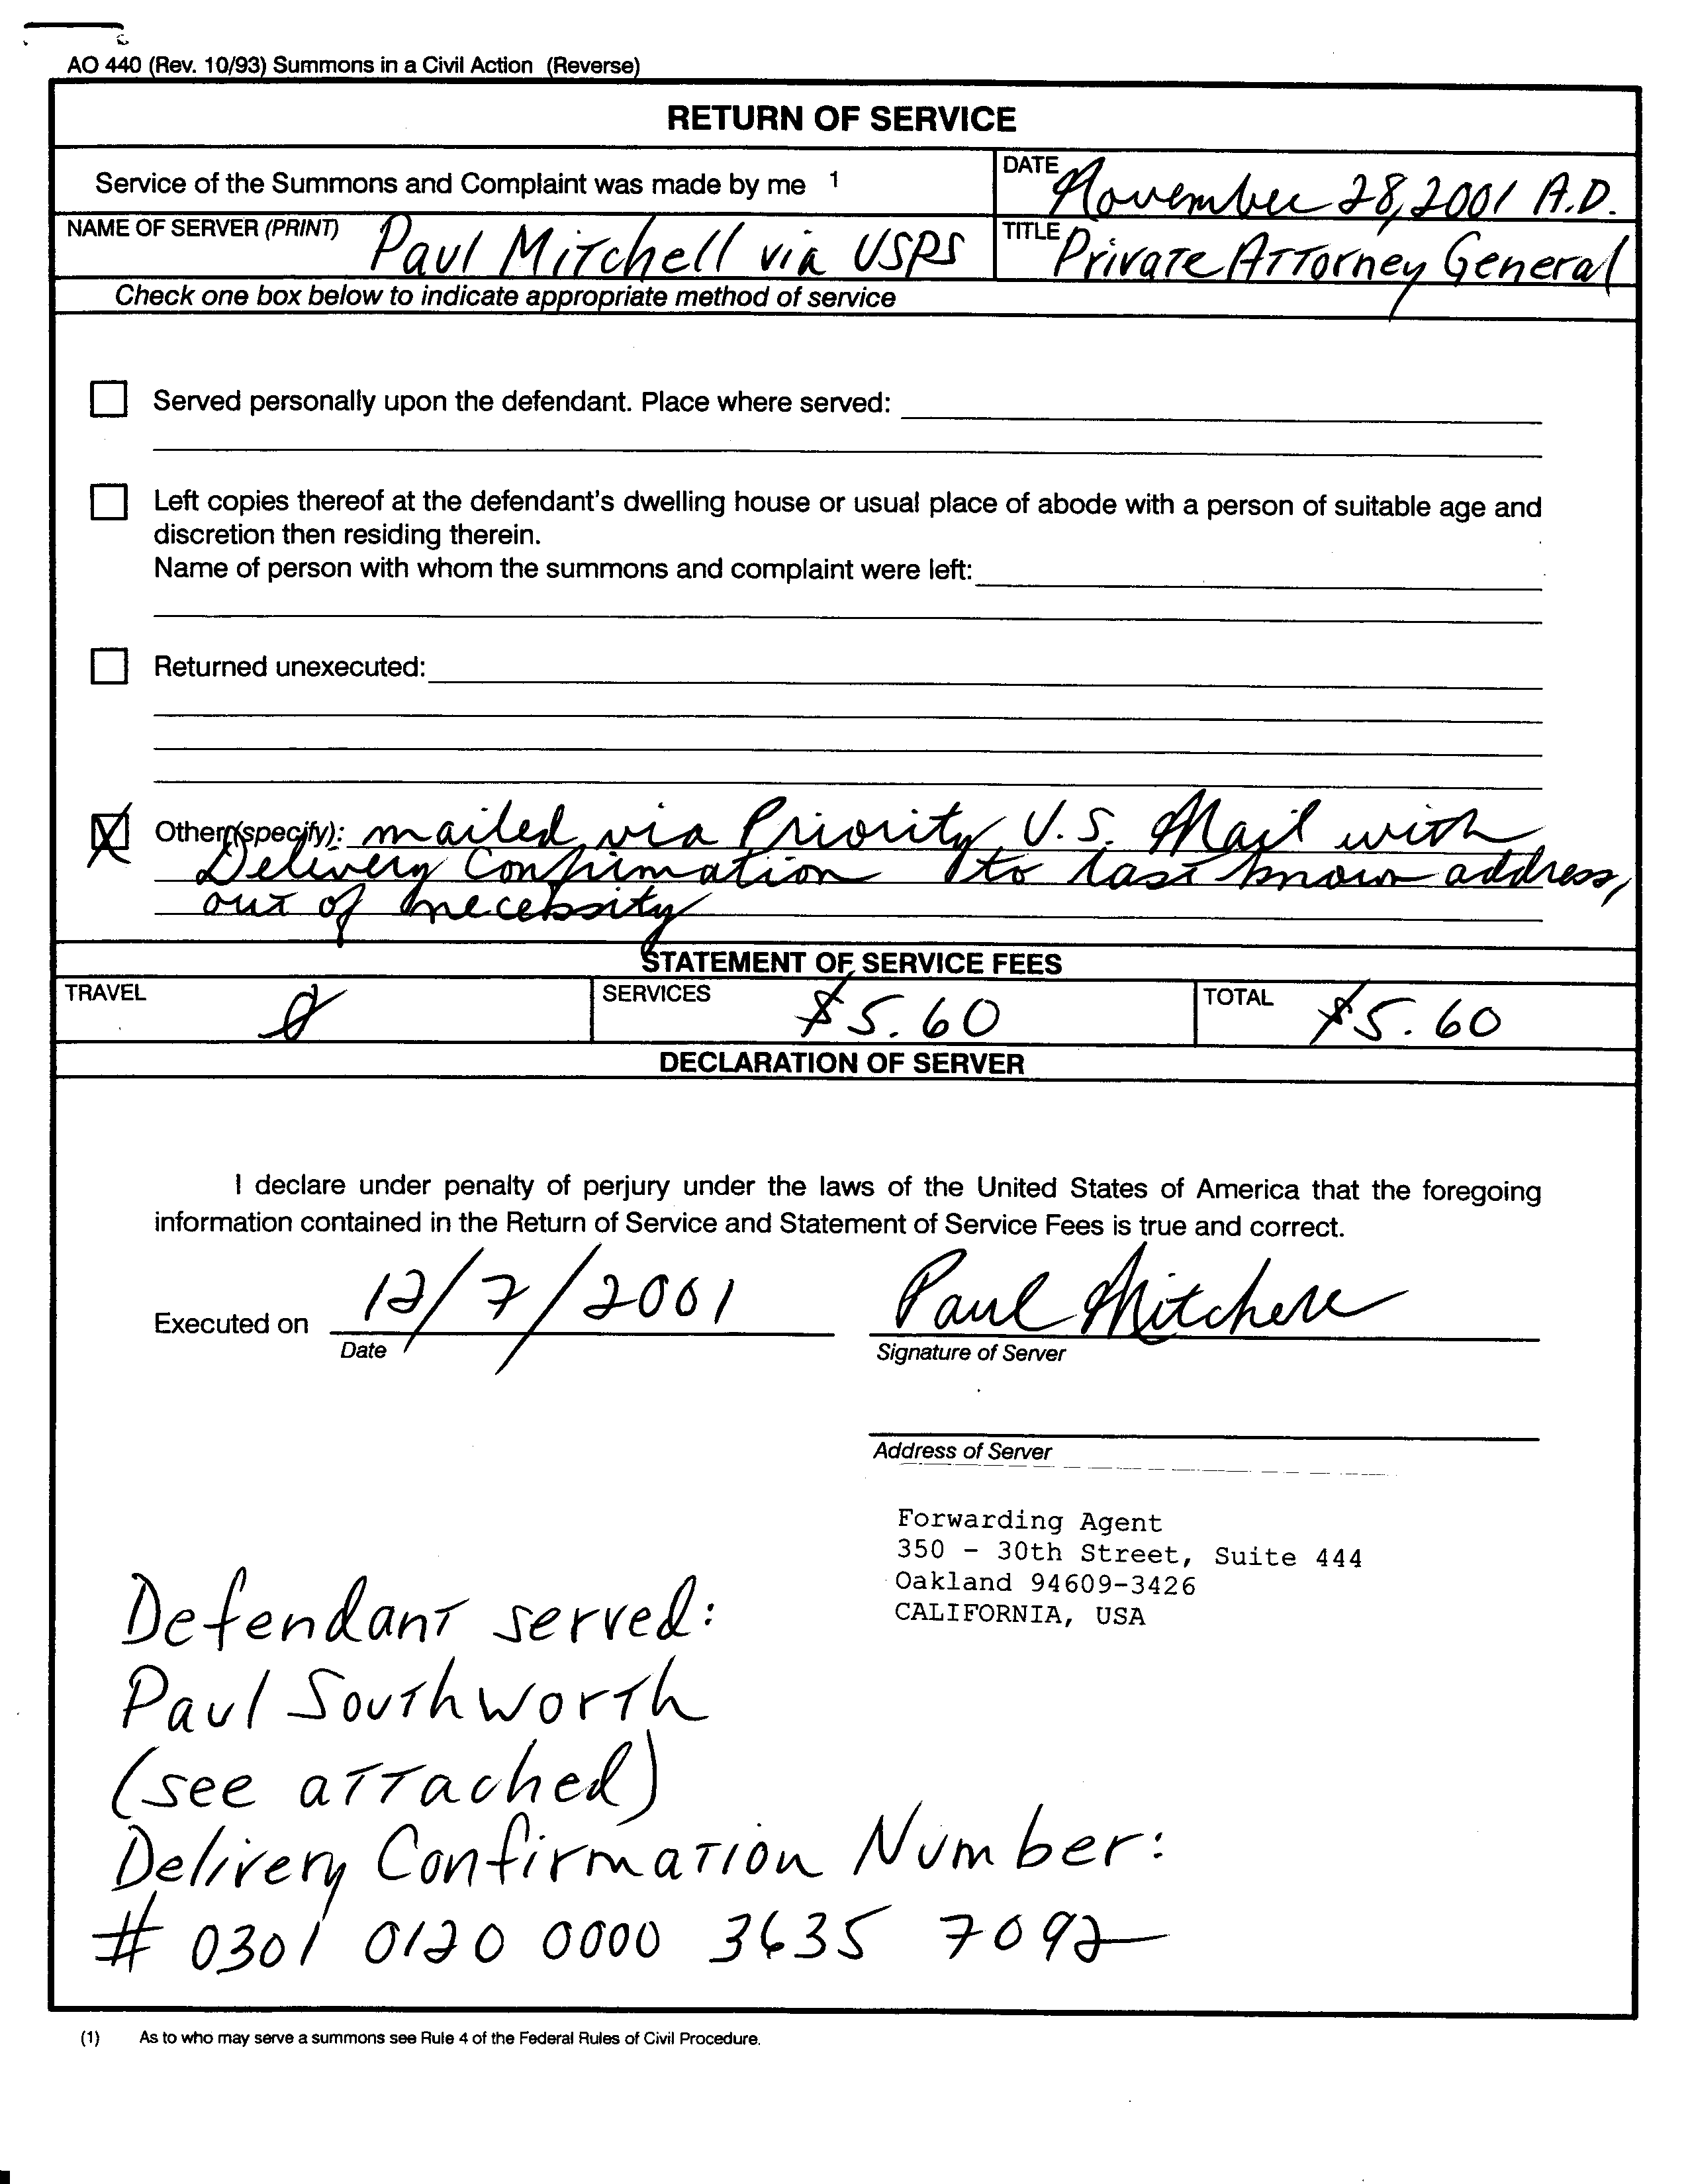 AO 440 (Rev. 10/93) Summons in a Civil Action (Reverse)
RETURN OF SERVICE
Service of the Summons and Complaint was made by me 1
DATE November 28, 2001 A.D.
NAME OF SERVER (PRINT) Paul Mitchell via USPS
TITLE Private Attorney General
Check one box below to indicate appropriate method of service
Served personally upon the defendant. Place where served:
Left copies thereof at the defendant's dwelling house or usual place of abode with a person of suitable age and
discretion then residing therein.
Name of person with whom the summons and complaint were left:
Returned unexecuted:
Other (specify): mailed via Priority U.S. Mail with
Delivery Confirmation to last known address,
out of necessity
STATEMENT OF SERVICE FEES
TRAVEL
SERVICES $5.60
TOTAL $5.60
DECLARATION OF SERVER
I declare under penalty of perjury under the laws of the United States of America that the foregoing
information contained in the Return of Service and Statement of Service Fees is true and correct.
Executed on 12/7/2001 Paul Mitchell
Date
Signature of Server
Address of Server
Forwarding Agent
350 - 30th Street, Suite 444
Oakland 94609-3426
CALIFORNIA, USA
Defendant served:
Paul Southworth
(see attached)
Delivery Confirmation Number:
# 0301 0120 0000 3635 7092
(1) As to who may serve a summons see Rule 4 of the Federal Rules of Civil Procedure.